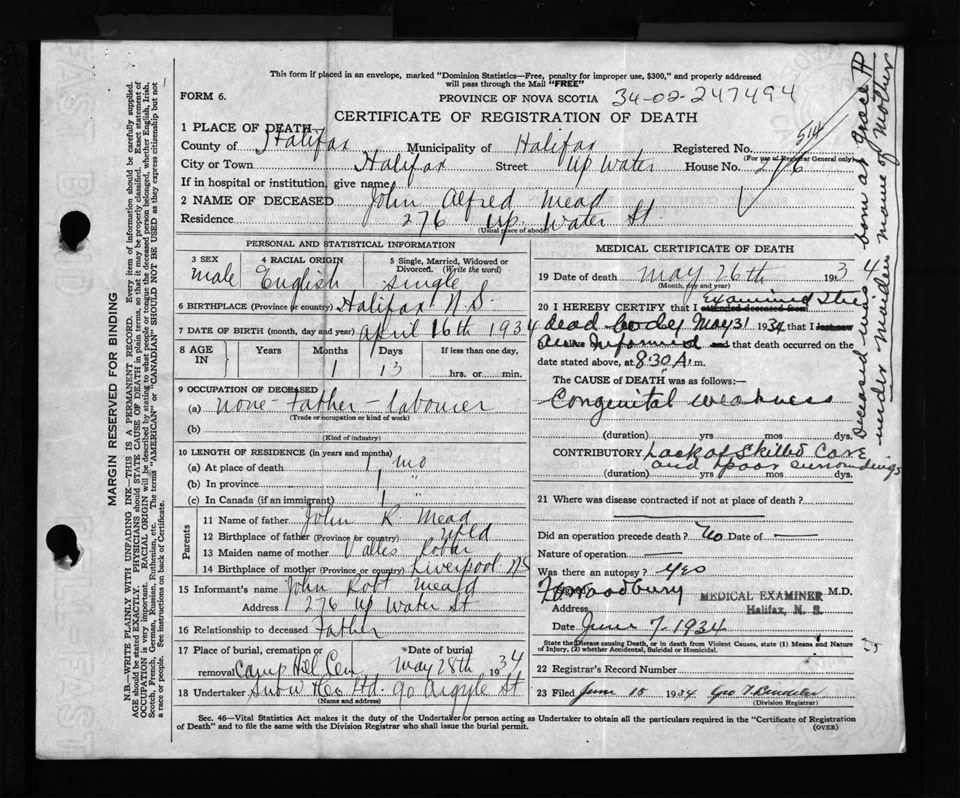 This form if placed in an envelope, marked "Dominion Statistics—Free, penalty for improper use, $300," and properly addressed
will pass through the Mail "FREE"
FORM 6.
PROVINCE OF NOVA SCOTIA 34-02-247494
CERTIFICATE OF REGISTRATION OF DEATH
1 PLACE OF DEATH—
County of Halifax Municipality of Halifax Registered No. 514
(For use of Registrar General only)
City or Town Halifax Street Up Water House No. 276
If in hospital or institution, give name
2 NAME OF DECEASED John Alfred Mead
Residence 276 Up. Water St
(Usual place of abode)
PERSONAL AND STATISTICAL INFORMATION
3 SEX male
4 RACIAL ORIGIN English
5 Single, Married, Widowed or Divorced. (Write the word) single
6 BIRTHPLACE (Province or country) Halifax N.S.
7 DATE OF BIRTH (month, day and year) April 16th 1934
8 AGE IN Years Months Days If less than one day,
1 13 hrs. or min.
9 OCCUPATION OF DECEASED
(a) none - Father - labourer
(Trade or occupation or kind of work)
(b)
(Kind of industry)
10 LENGTH OF RESIDENCE (in years and months)
(a) At place of death 1 mo
(b) In province 1 "
(c) In Canada (if an immigrant) 1 "
Parents
11 Name of father John R Mead
12 Birthplace of father (Province or country) Nfld
13 Maiden name of mother
14 Birthplace of mother (Province or country) Liverpool NS
15 Informant's name John Robt Meard
Address 276 Up Water St
16 Relationship to deceased Father
17 Place of burial, cremation or removal Camp Hill Cem Date of burial May 28th 1934
18 Undertaker Snow & Co Ltd. 90 Argyle St
(Name and address)
MEDICAL CERTIFICATE OF DEATH
19 Date of death May 26th 1934
(Month, day and year)
20 I HEREBY CERTIFY that I attended deceased from Examined the
dead body May 31 1934 that I last saw
am Informed and that death occurred on the
date stated above, at 8:30 A. m.
The CAUSE OF DEATH was as follows:—
Congenital weakness
(duration) yrs mos dys.
CONTRIBUTORY Lack of skilled Care
and poor surroundings
(duration) yrs mos dys.
21 Where was disease contracted if not at place of death?
Did an operation precede death? No Date of —
Nature of operation —
Was there an autopsy? Yes
Woodbury MEDICAL EXAMINER M.D.
Address Halifax, N. S.
Date June 7, 1934
State the Disease causing Death, or in death from Violent Causes, state (1) Means and Nature
of Injury, (2) whether Accidental, Suicidal or Homicidal.
22 Registrar's Record Number
23 Filed June 15 1934
(Division Registrar)
Sec. 46—Vital Statistics Act makes it the duty of the Undertaker or person acting as Undertaker to obtain all the particulars required in the "Certificate of Registration
of Death" and to file the same with the Division Registrar who shall issue the burial permit.
(OVER)
MARGIN RESERVED FOR BINDING
N.B.—WRITE PLAINLY WITH UNFADING INK—THIS IS A PERMANENT RECORD. Every item of information should be carefully supplied.
AGE should be stated EXACTLY. PHYSICIANS should STATE CAUSE OF DEATH in plain terms, so that it may be properly classified. Exact statement of
OCCUPATION is very important. RACIAL ORIGIN will be described by stating to what people or tongue the deceased person belonged, whether English, Irish,
Scotch, French, German, Russian, Ruthenian, etc. The terms "AMERICAN" or "CANADIAN" SHOULD NOT BE USED as they express citizenship but not
a race or people. See instructions on back of Certificate.
Deceased was born at Grace H
under maiden name of mother